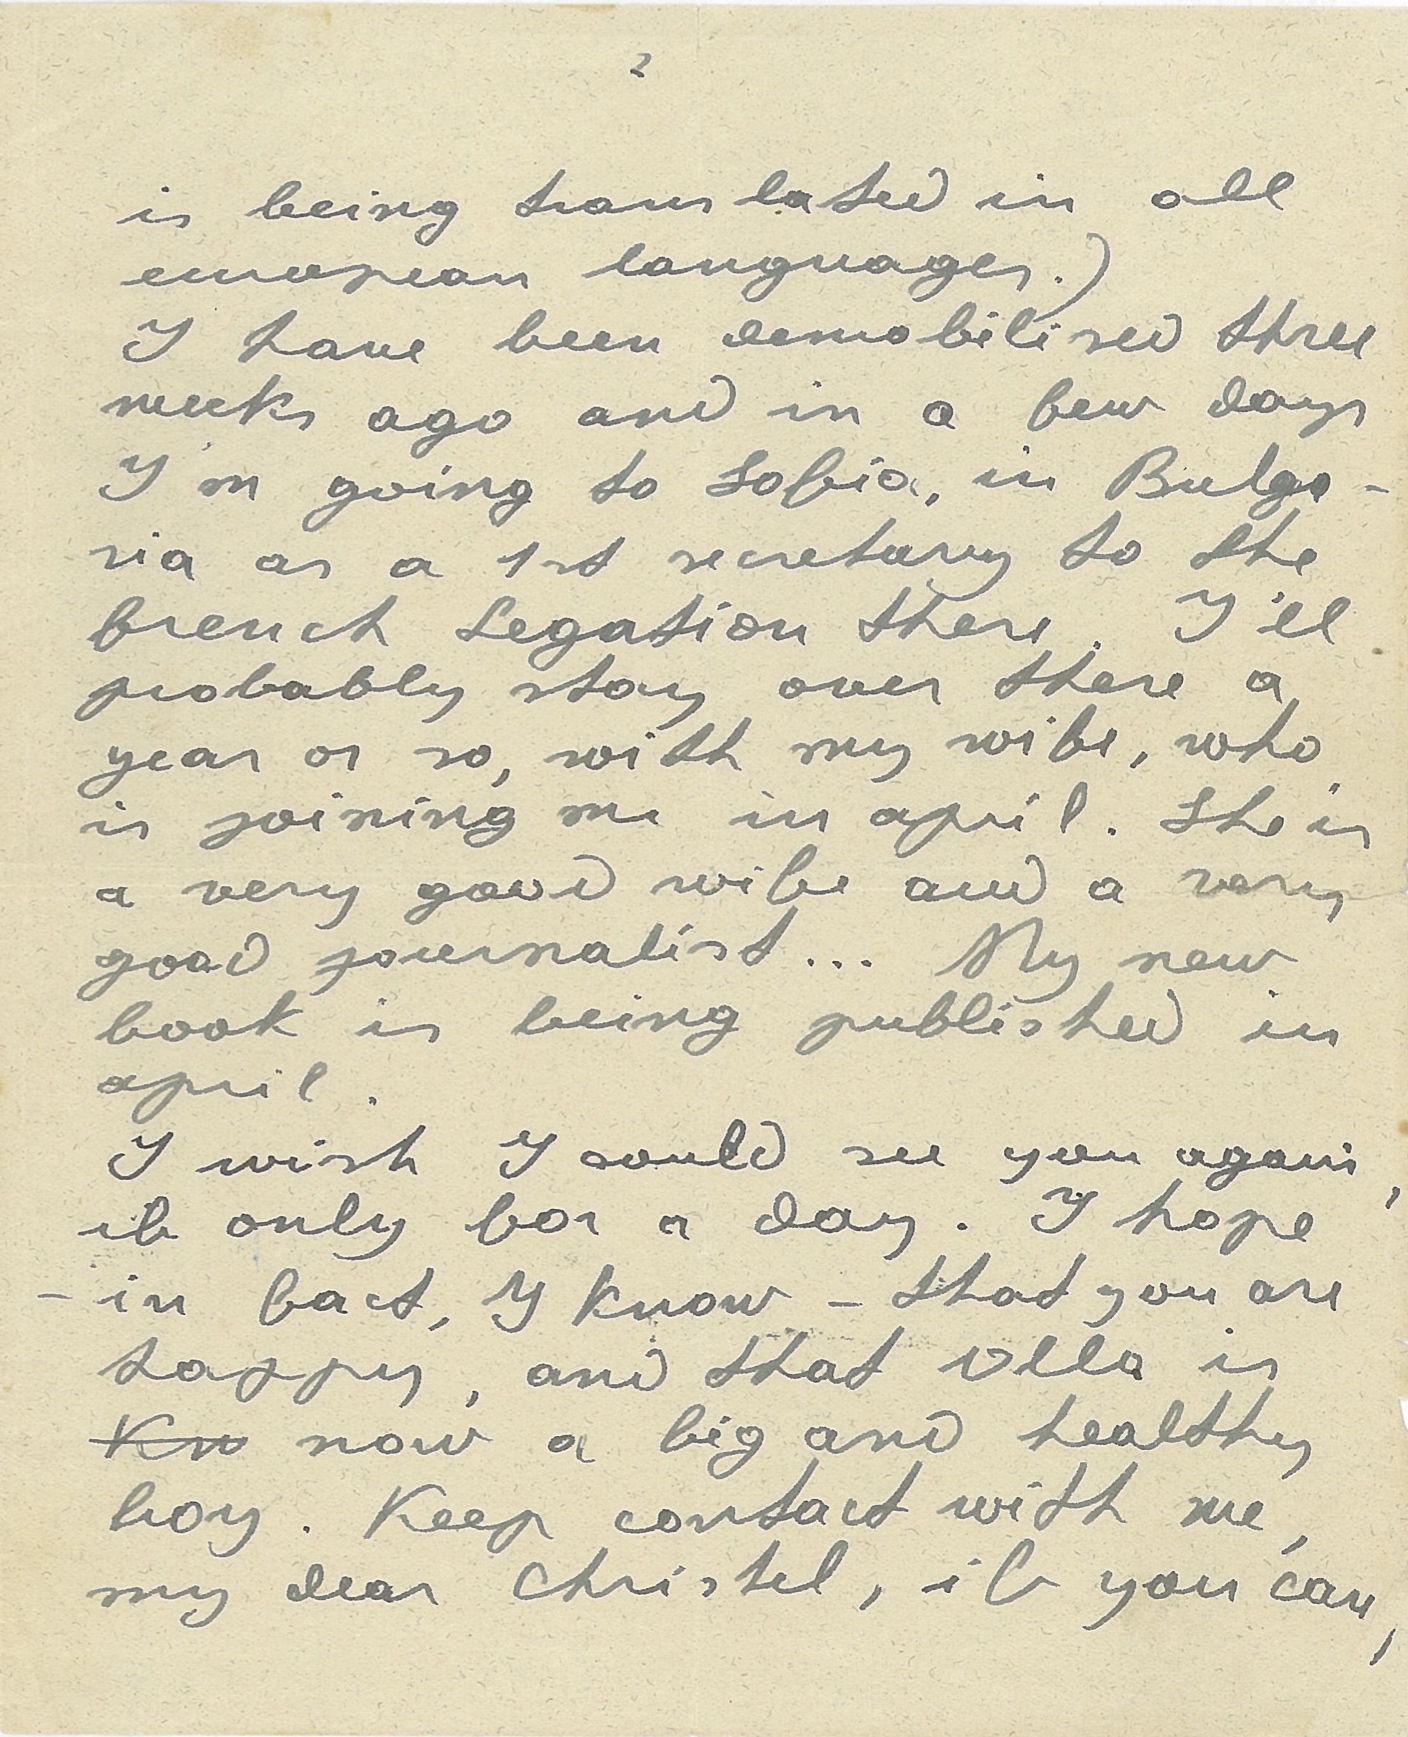 2
is being translated in all
european languages.)
I have been demobilised three
weeks ago and in a few days
I'm going to Sofia, in Bulga-
ria as a 1st secretary to the
french Legation there. I'll
probably stay over there a
year or so, with my wife, who
is joining me in april. She is
a very good wife and a very
good journalist... My new
book is being published in
april.
I wish I could see you again,
if only for a day. I hope
- in fact, I know - that you are
happy, and that Ulla is
Kn now a big and healthy
boy. Keep contact with me,
my dear Christel, if you can,